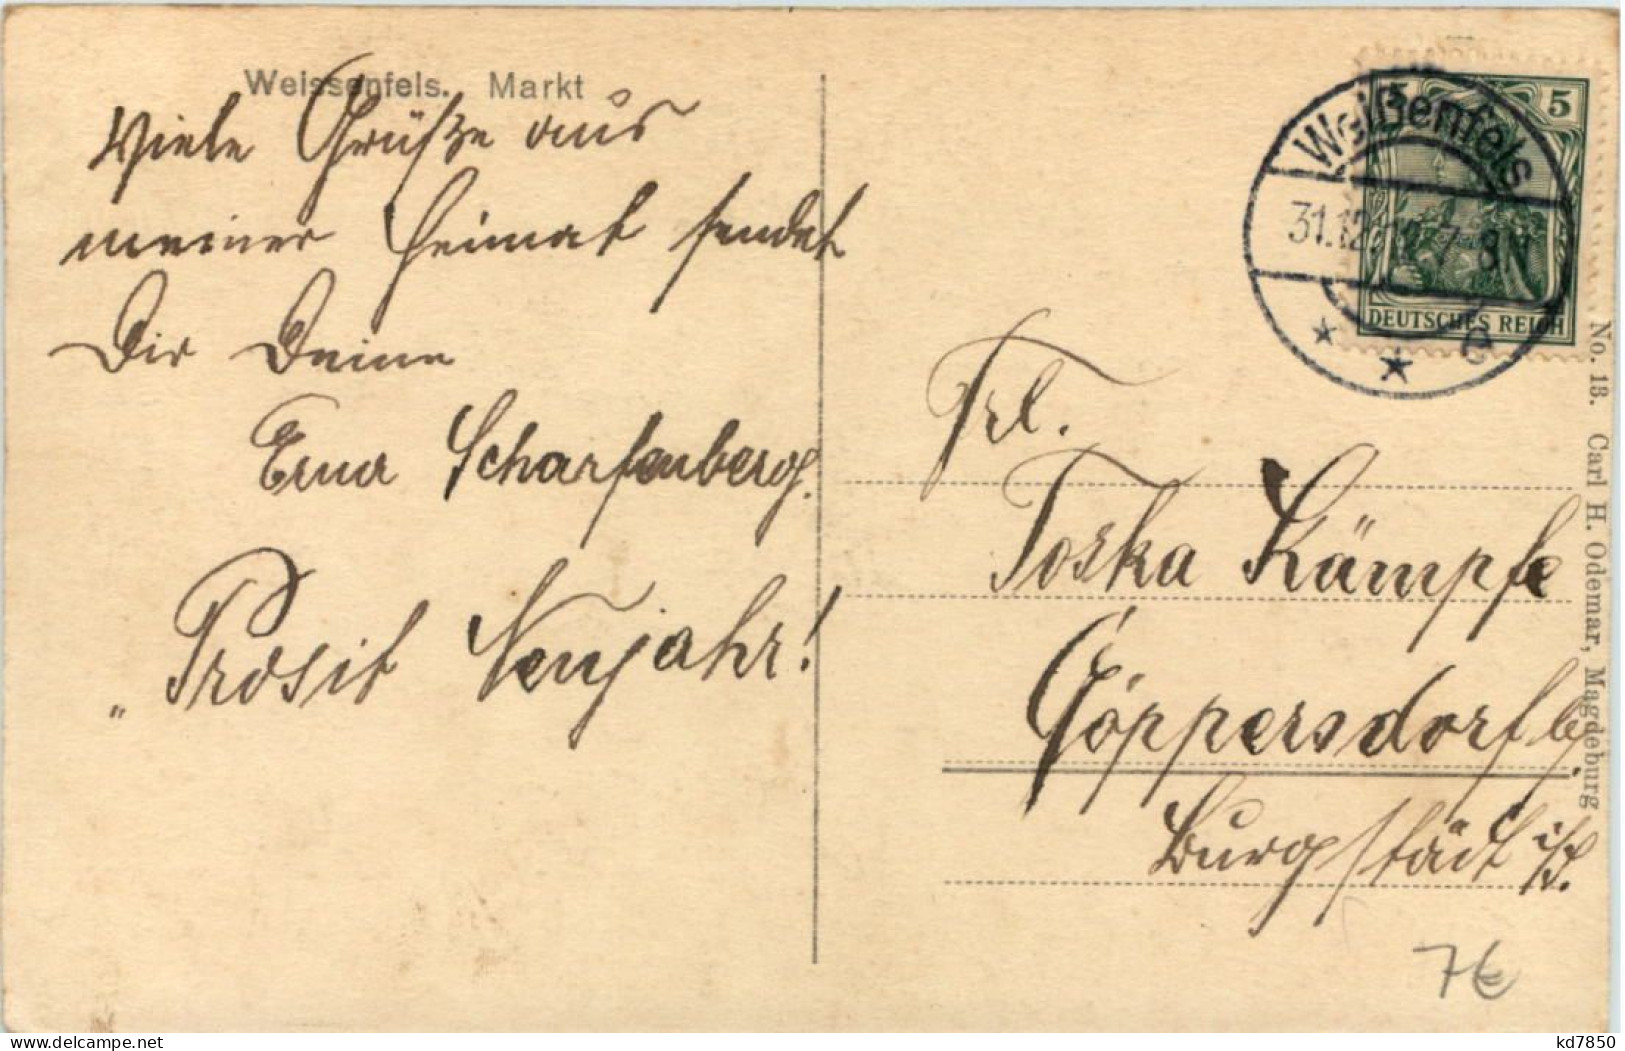 Weissenfels. Markt
Viele Grüße aus
meiner Heimat sendet
Dir Deine
Erna Scharfenberg.
„Prosit Neujahr!
Weißenfels
31.12. 7-8V
* * e
5 5
DEUTSCHES REICH
Frl.
Toska Kämpfe
Göppersdorf b.
Burgstädt i/S.
No. 13. Carl H. Odemar, Magdeburg
7€
kd7850